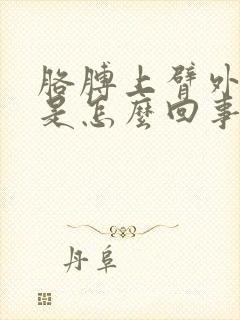 胳膊上臂外
是怎麽回事
丹阜